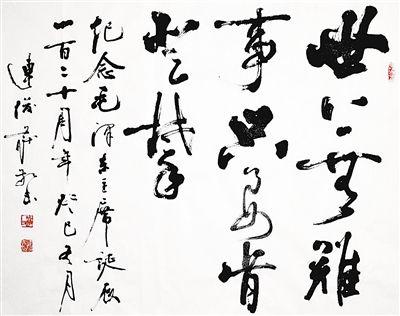 世上無難
事只要肯
登攀
纪念毛泽东主席诞辰
一百二十周年癸巳月
敬书